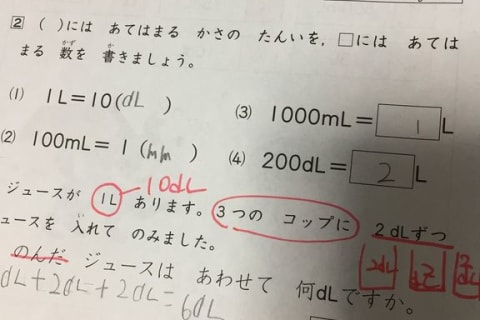 2 ( )には あてはまる かさの たんいを, □には あては
まる 数を 書きましょう。
(1) 1L=10(dL )
(3) 1000mL= 1 L
(2) 100mL= 1 (mm )
(4) 200dL= 2 L
10dL
ジュースが 1L あります。3つの コップに 2dLずつ
ュースを 入れて のみました。
2dL dL
のんだ ジュースは あわせて 何dLですか。
dL+2dL+2dL=6dL